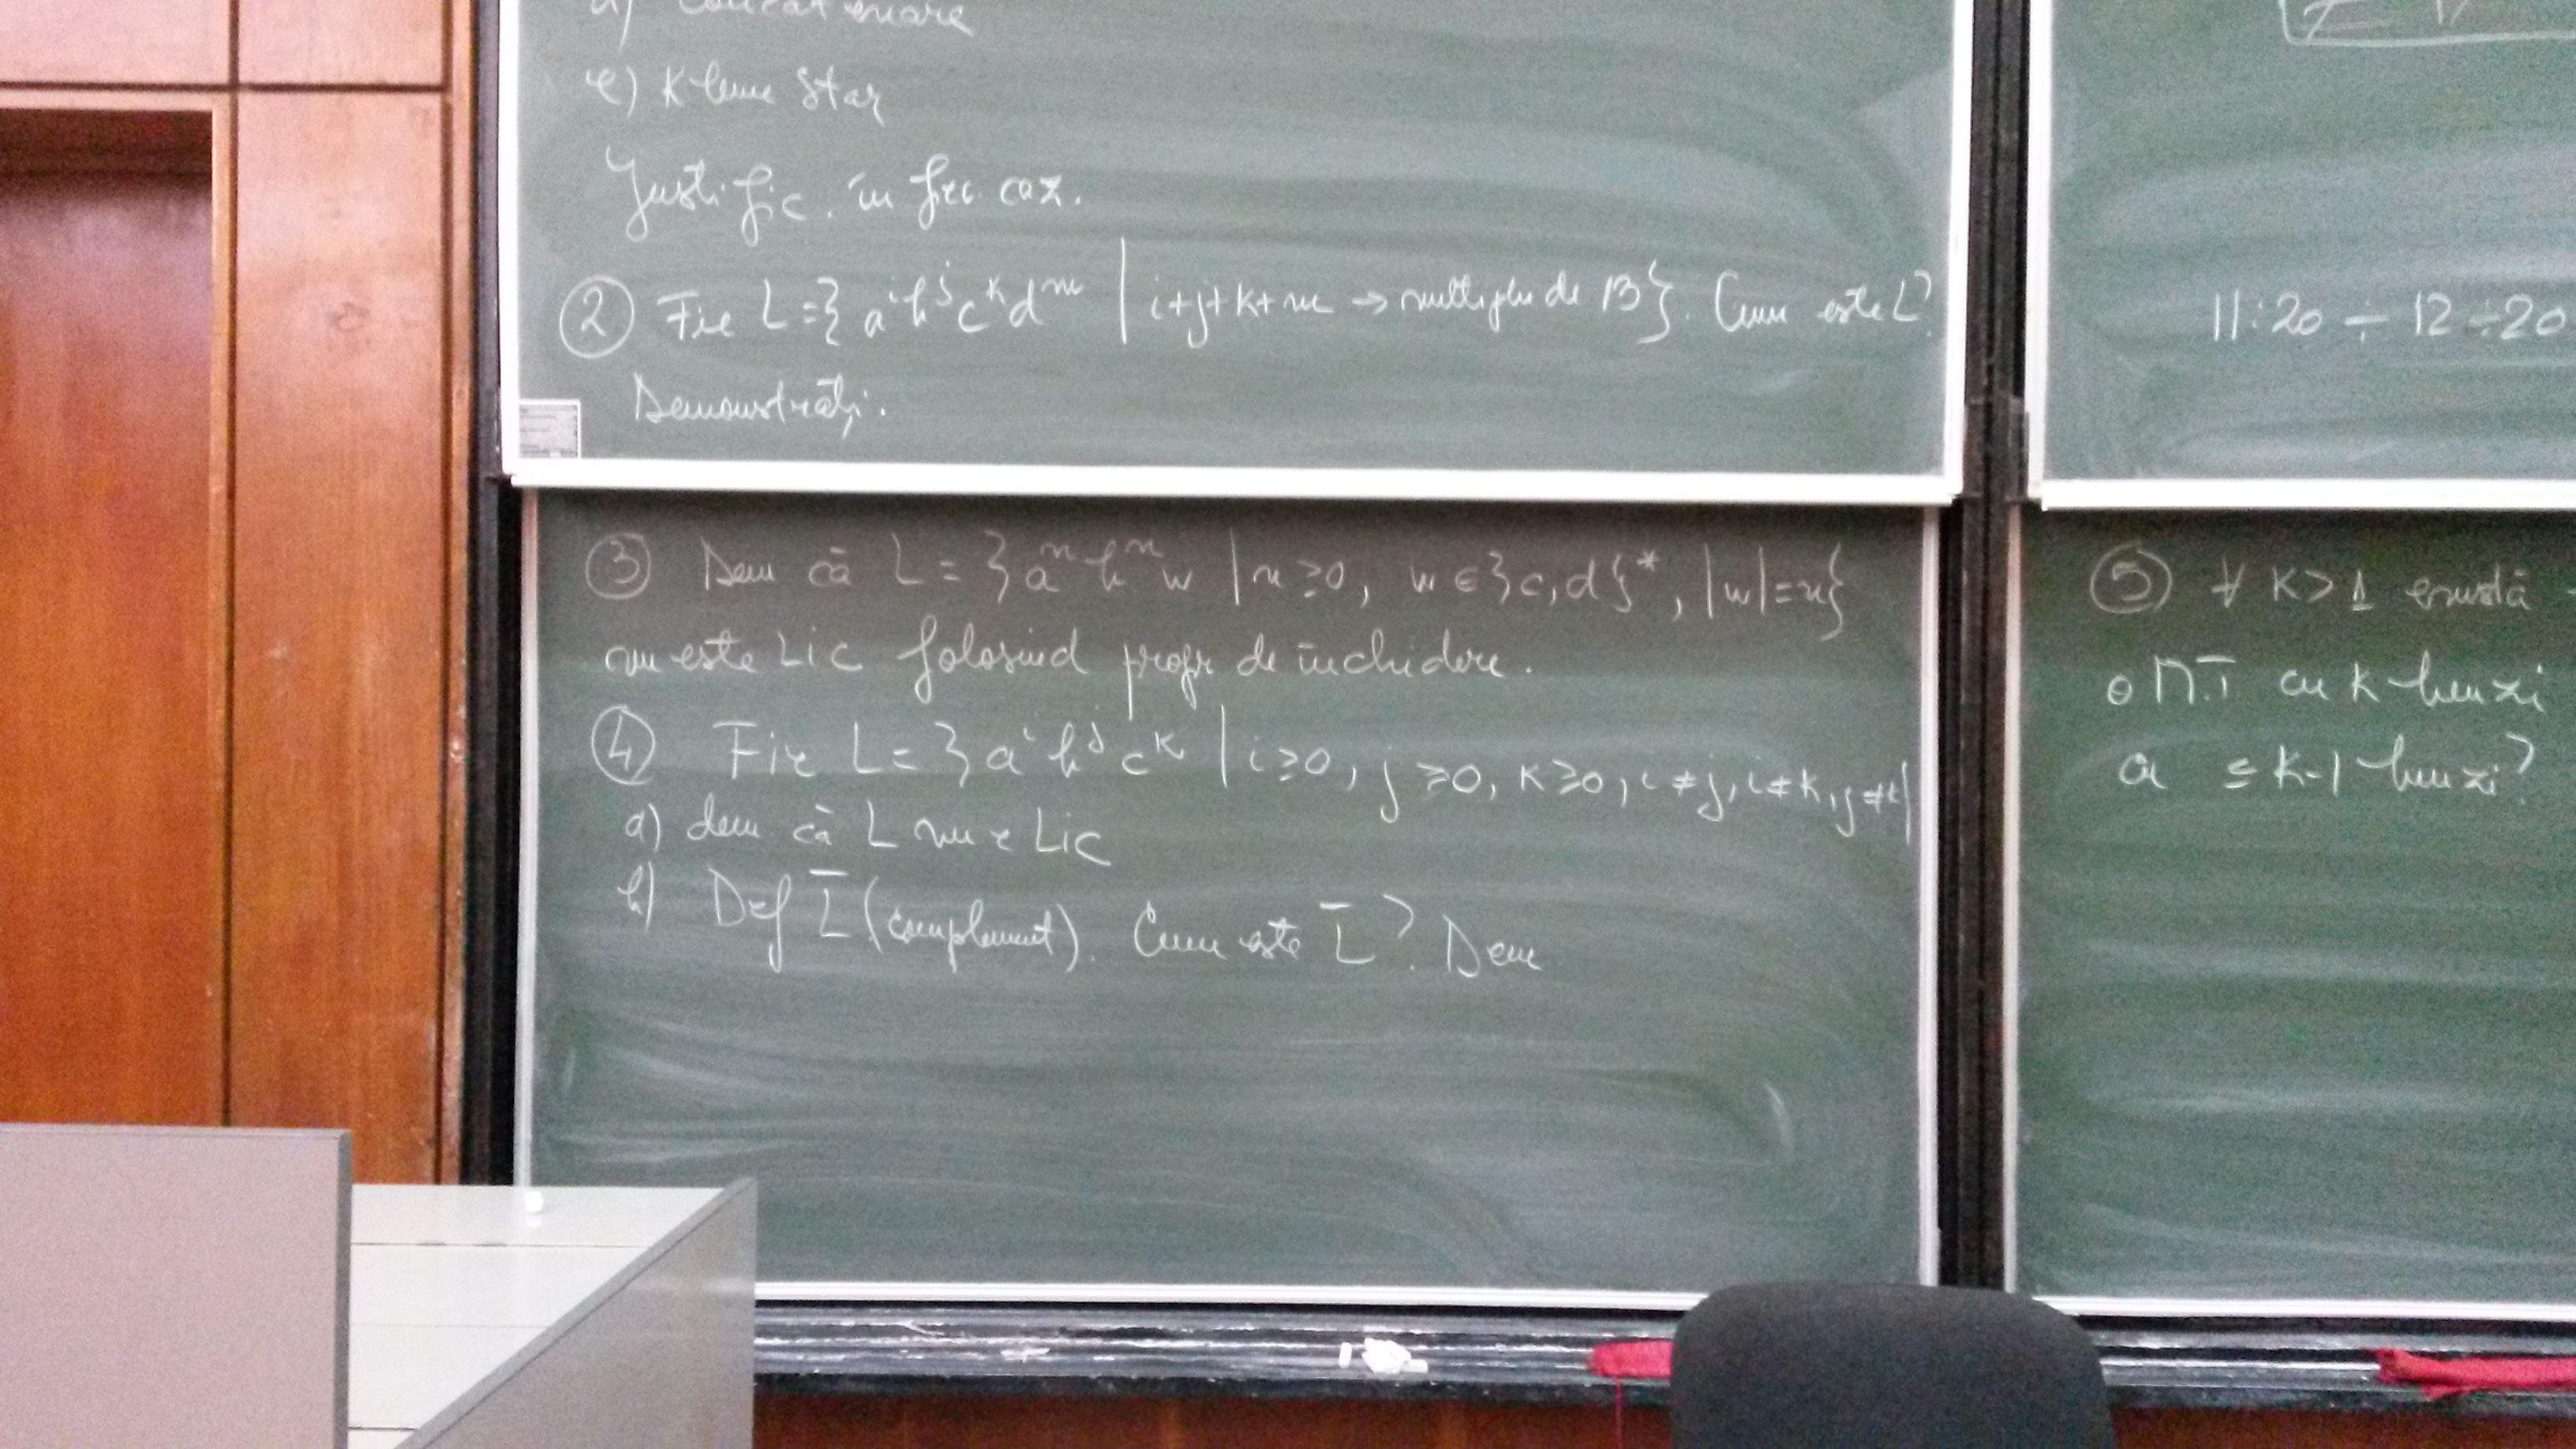 d) concatenare
e) Kleene Star
Justific. în fiec. caz.
② Fie L = { aⁱ bʲ cᵏ dᵐ | i+j+k+m → multiplu de 13 }. Cum este L?
Demonstrați.
③ Dem că L = { aⁿ bⁿ w | n ≥ 0, w ∈ {c, d}*, |w| = n }
nu este Lic folosind propr de închidere.
④ Fie L = { aⁱ bʲ cᵏ | i ≥ 0, j ≥ 0, k ≥ 0, i ≠ j, i ≠ k, j ≠ k }
a) dem. că L nu e Lic
b) Def L̄ (complement). Cum este L̄? Dem
11:20 ÷ 12:20
⑤ ∀ K > 1 există
o M.T cu K benzi
a ≤ K-1 benzi?